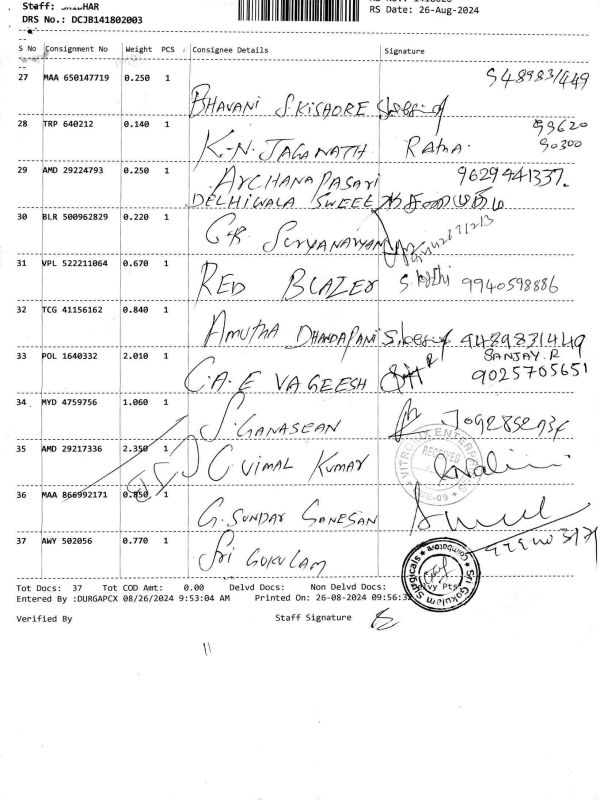 Staff: SRIDHAR
DRS No.: DCJB141802003
RS Date: 26-Aug-2024
S No Consignment No Weight PCS Consignee Details Signature
27 MAA 650147719 0.250 1 BHAVANI S.KISHORE 9489831449
28 TRP 640212 0.140 1 K.N. JAGANATH Ratna. 99620 90300
29 AMD 29224793 0.250 1 ARCHANA PASARI 9629441337.
DELHIWALA SWEET
30 BLR 500962829 0.220 1 G.R. SURYANARYAN
31 VPL 522211064 0.670 1 RED BLAZER 9940598886
32 TCG 41156162 0.840 1 AMUTHA DHANDAPANI 9489831449
33 POL 1640332 2.010 1 C.A.E VAGEESH SANJAY.R 9025705651
34 MYD 4759756 1.060 1 S. GANASEAN
35 AMD 29217336 2.350 1 C. VIMAL KUMAR RECEIVED
36 MAA 866992171 0.850 1 G. SUNDAR GANESAN
37 AWY 502056 0.770 1 SRI GOKULAM
Sri Gokulam Surgicals ★ Coimbatore ★
Tot Docs: 37 Tot COD Amt: 0.00 Delvd Docs: Non Delvd Docs: Delvy Pts
Entered By :DURGAPCX 08/26/2024 9:53:04 AM Printed On: 26-08-2024 09:56:3
Verified By Staff Signature